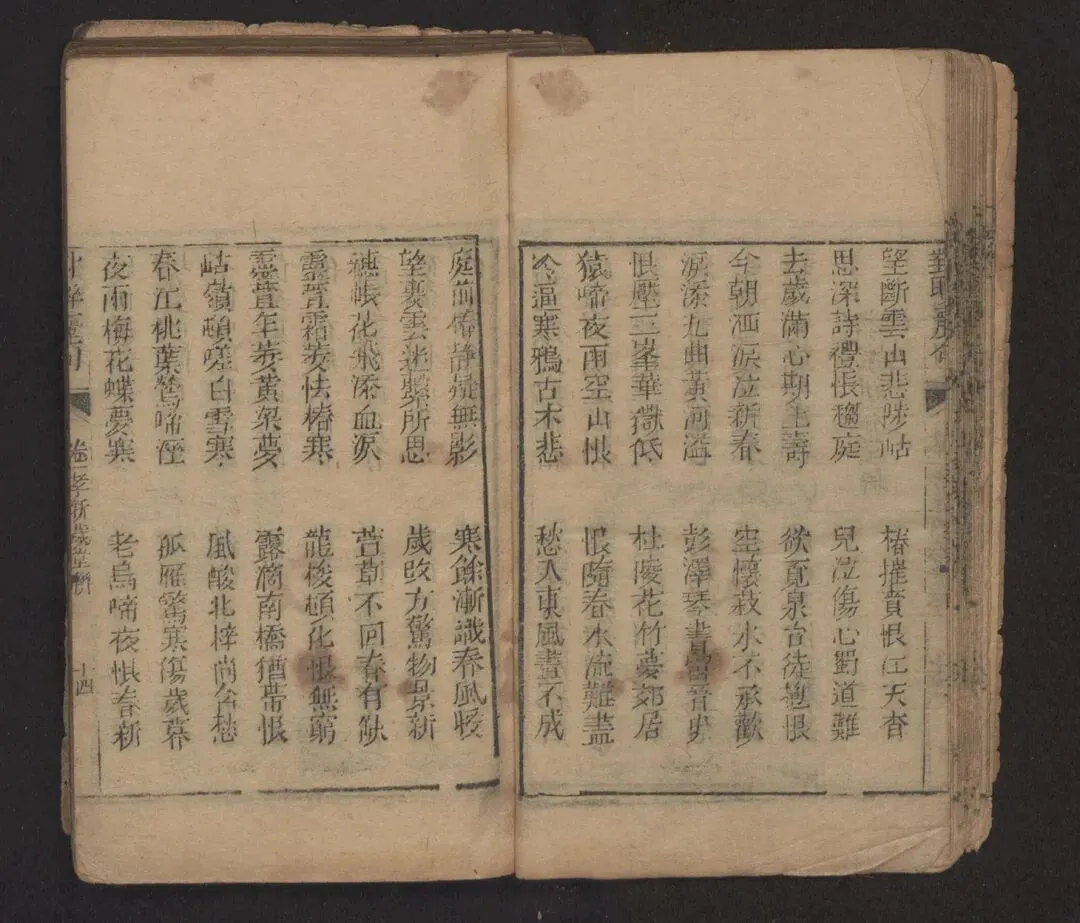 望斷雲山悲陟岵 椿摧賫恨江天杳
思深詩禮悵趨庭 兒泣傷心蜀道難
去歲滿心期上壽 欲覓泉台徒抱恨
今朝洒淚泣新春 空懷菽水不承歡
淚添九曲黃河溢 彭澤琴書當晉史
恨壓三峯華嶽低 杜陵花竹夢郊居
猿啼夜雨空山恨 恨隨春水流難盡
冷逼寒鴉古木悲 愁入東風畫不成
庭前椿靜疑無影 寒餘漸識春風暖
望裏雲迷懸所思 歲改方驚物景新
穗帳花飛添血淚 萱草不回春有缺
靈萱霜萎怯椿寒 龍梭頓化恨無窮
靈萱年萎黃粱夢 露滴南橋猶帶恨
岵嶺頓嗟白雪寒 風酸北梓尚含愁
春江桃葉鶯啼溼 孤雁驚寒傷歲暮
夜雨梅花蝶夢寒 老烏啼夜惧春新
卷一 孝新 十四